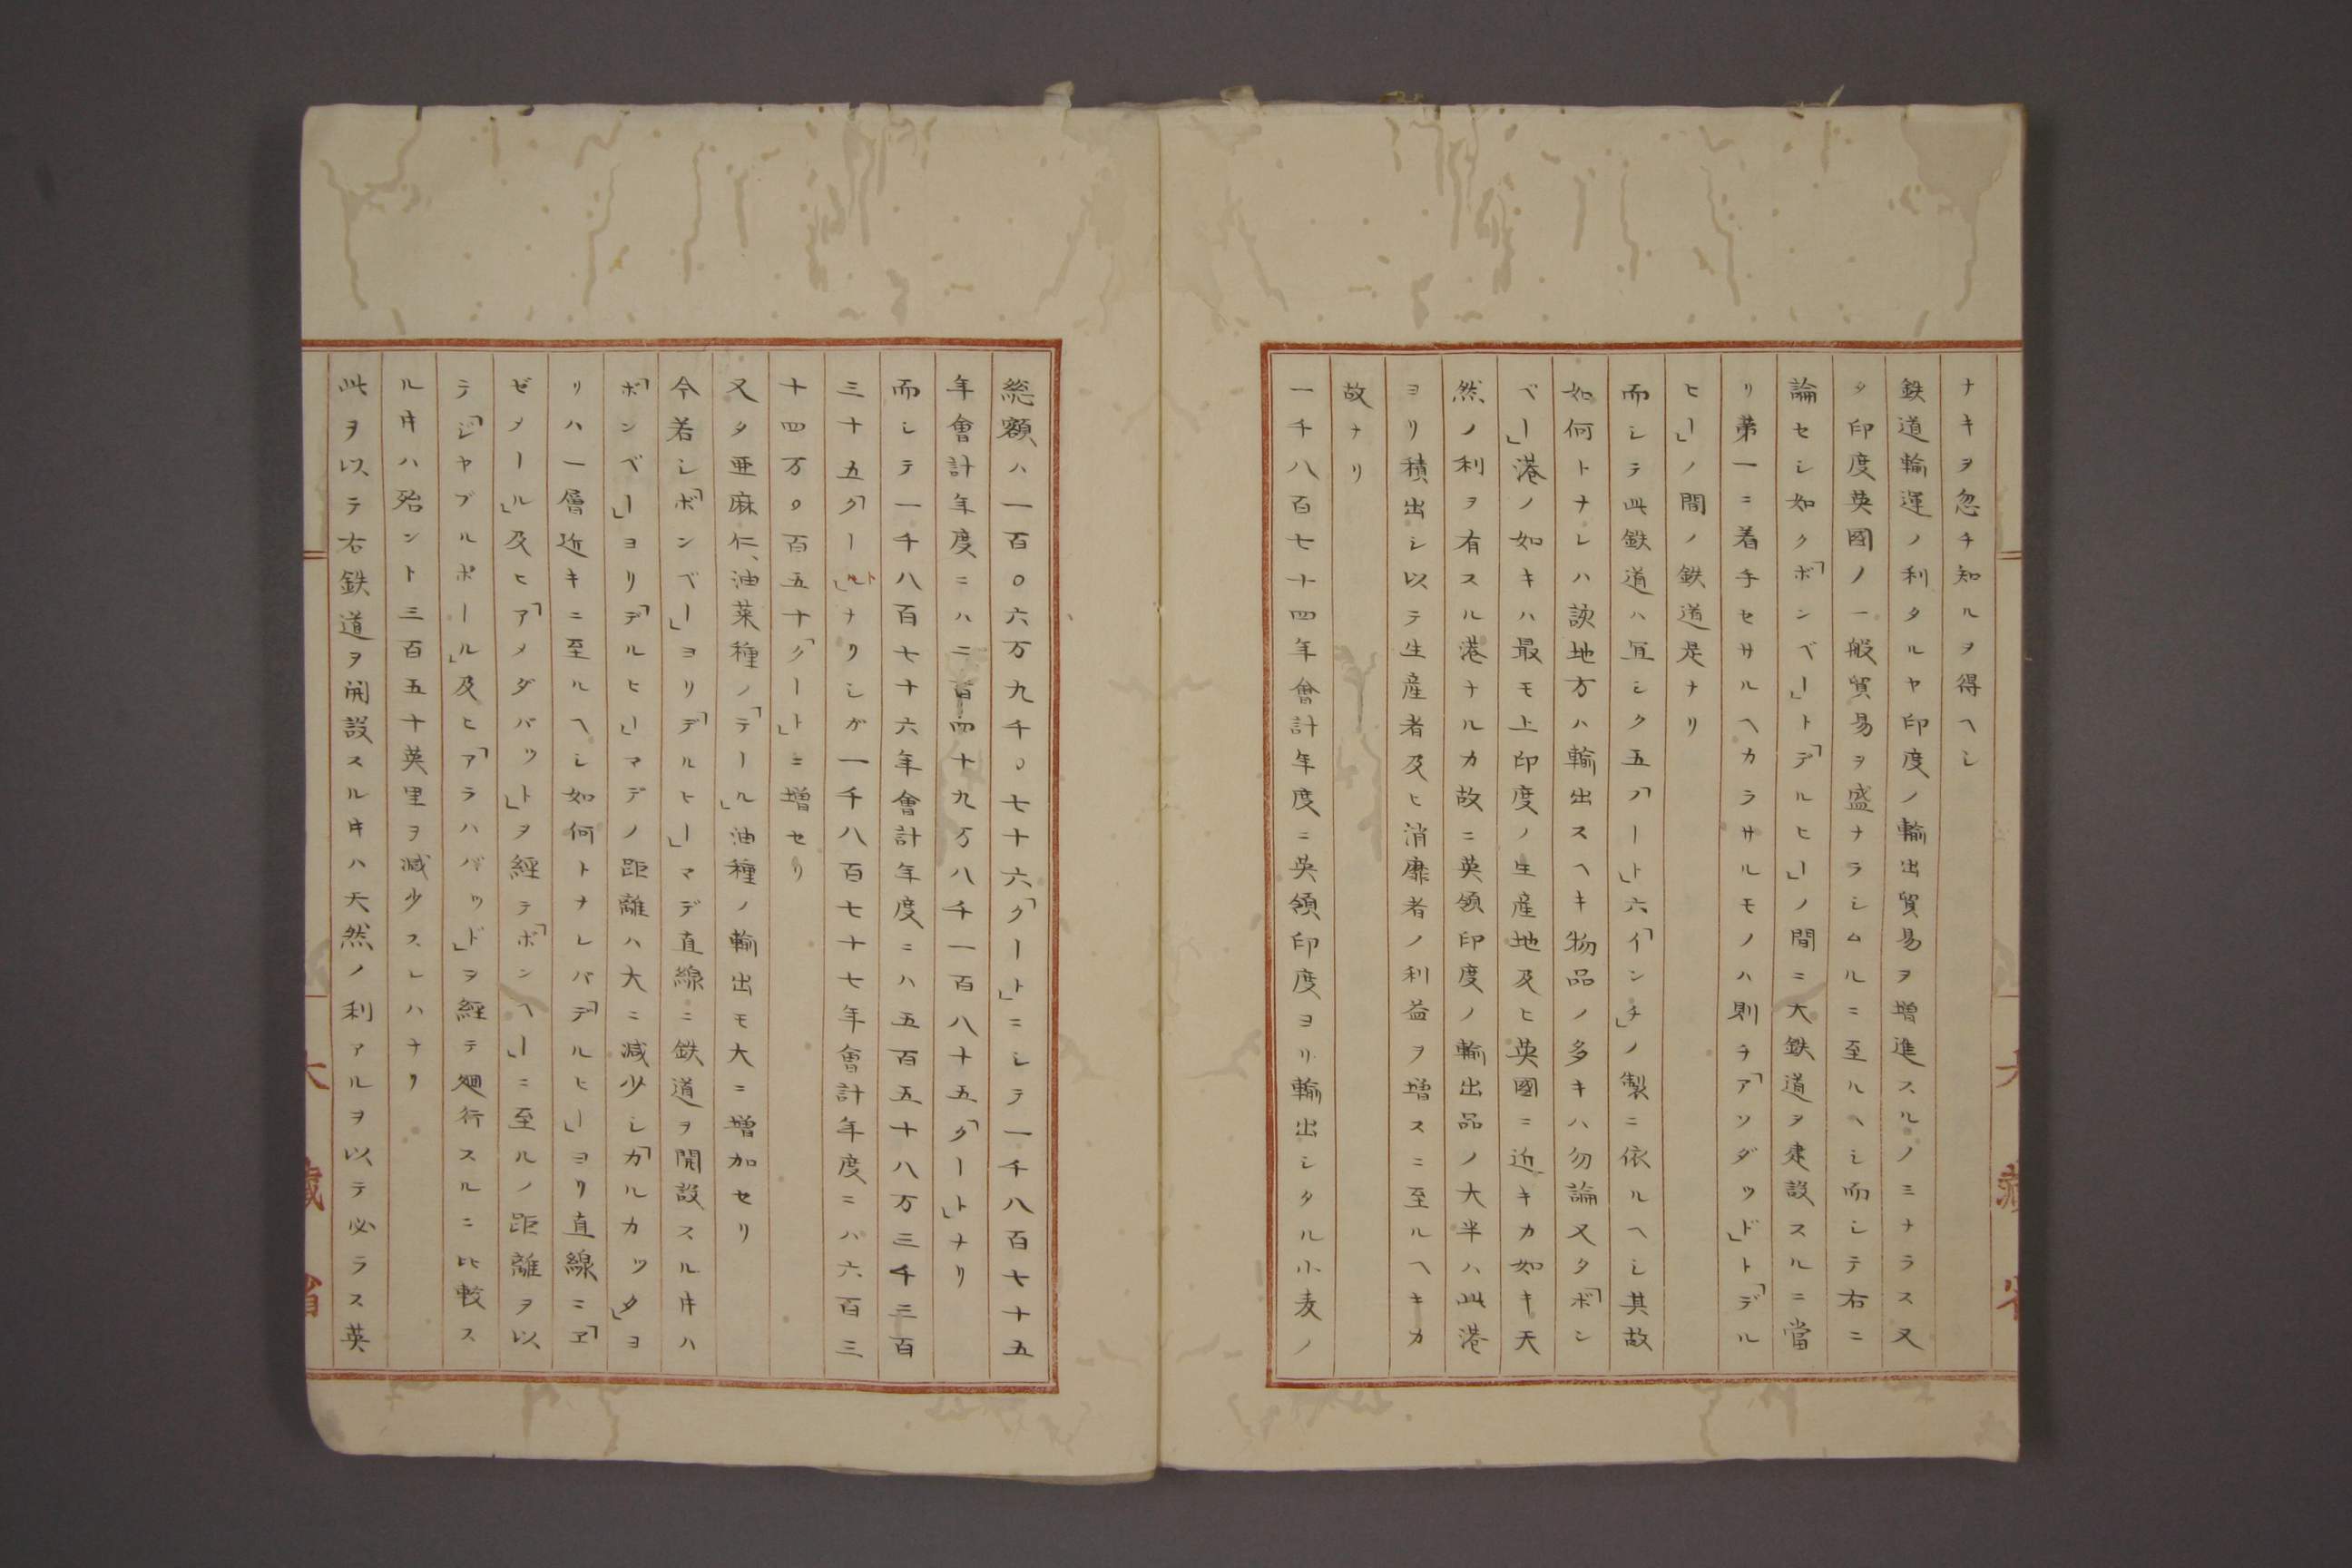 ナキヲ忽チ知ルヲ得ヘシ
鉄道輸運ノ利タルヤ印度ノ輸出貿易ヲ増進スルノミナラス又
タ印度英國ノ一般貿易ヲ盛ナラシムルニ至ルヘシ而シテ右ニ
論セシ如ク「ボンベー」ト「デルヒー」ノ間ニ大鉄道ヲ建設スルニ當
リ第一ニ着手セサルヘカラサルモノハ則チ「アソダッド」ト「デル
ヒー」ノ間ノ鉄道是ナリ
而シテ此鉄道ハ宜シク五「フート」六「インチ」ノ製ニ依ルヘシ其故
如何トナレハ該地方ハ輸出スヘキ物品ノ多キハ勿論又タ「ボン
ベー」港ノ如キハ最モ上印度ノ生産地及ヒ英國ニ近キカ如キ天
然ノ利ヲ有スル港ナルカ故ニ英領印度ノ輸出品ノ大半ハ此港
ヨリ積出シ以テ生産者及ヒ消靡者ノ利益ヲ増スニ至ルヘキカ
故ナリ
一千八百七十四年會計年度ニ英領印度ヨリ輸出シタル小麦ノ
総額ハ一百〇六万九千〇七十六「クート」ニシテ一千八百七十五
年會計年度ニハ二百四十九万八千一百八十五「クート」ナリ
而シテ一千八百七十六年會計年度ニハ五百五十八万三千三百
三十五「クート」ナリシガ一千八百七十七年會計年度ニハ六百三
十四万〇百五十「クート」ニ増セリ
又タ亜麻仁、油菜種ノ「テール」油種ノ輸出モ大ニ増加セリ
今若シ「ボンベー」ヨリ「デルヒー」マデ直線ニ鉄道ヲ開設スル寸ハ
「ボンベー」ヨリ「デルヒー」マデノ距離ハ大ニ減少シ「カルカッタ」ヨ
リハ一層近キニ至ルヘシ如何トナレバ「デルヒー」ヨリ直線ニ「ヱ
ゼメール」及ヒ「アメダバット」ヲ經テ「ボンヘー」ニ至ルノ距離ヲ以
テ「ジヤブルポール」及ヒ「アラハバッド」ヲ經テ廻行スルニ比較ス
ル寸ハ殆ント三百五十英里ヲ減少スレハナリ
此ヲ以テ右鉄道ヲ開設スル寸ハ天然ノ利アルヲ以テ必ラス英
大藏省